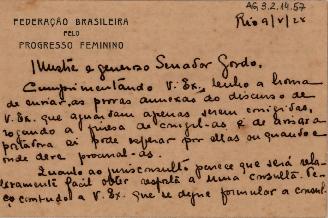 AG,3.2.14.57
FEDERAÇÃO BRASILEIRA
PELO
PROGRESSO FEMININO
Rio 9/V/28
Illustre e generoso Senador Gordo.
Cumprimentando V. Ex., tenho a honra
de enviar as provas annexas do discurso de
V. Ex. que aguardam apenas serem corrigidas,
rogando a fineza de corrigil-as e de dizer a
portadora si pode esperar por ellas ou quando e
onde deve procural-as.
Quanto ao jurisconsulto parece que será rela-
tivamente facil obter resposta a uma consulta. Pe-
ço comtudo a V. Ex. que se digne formular a consul-